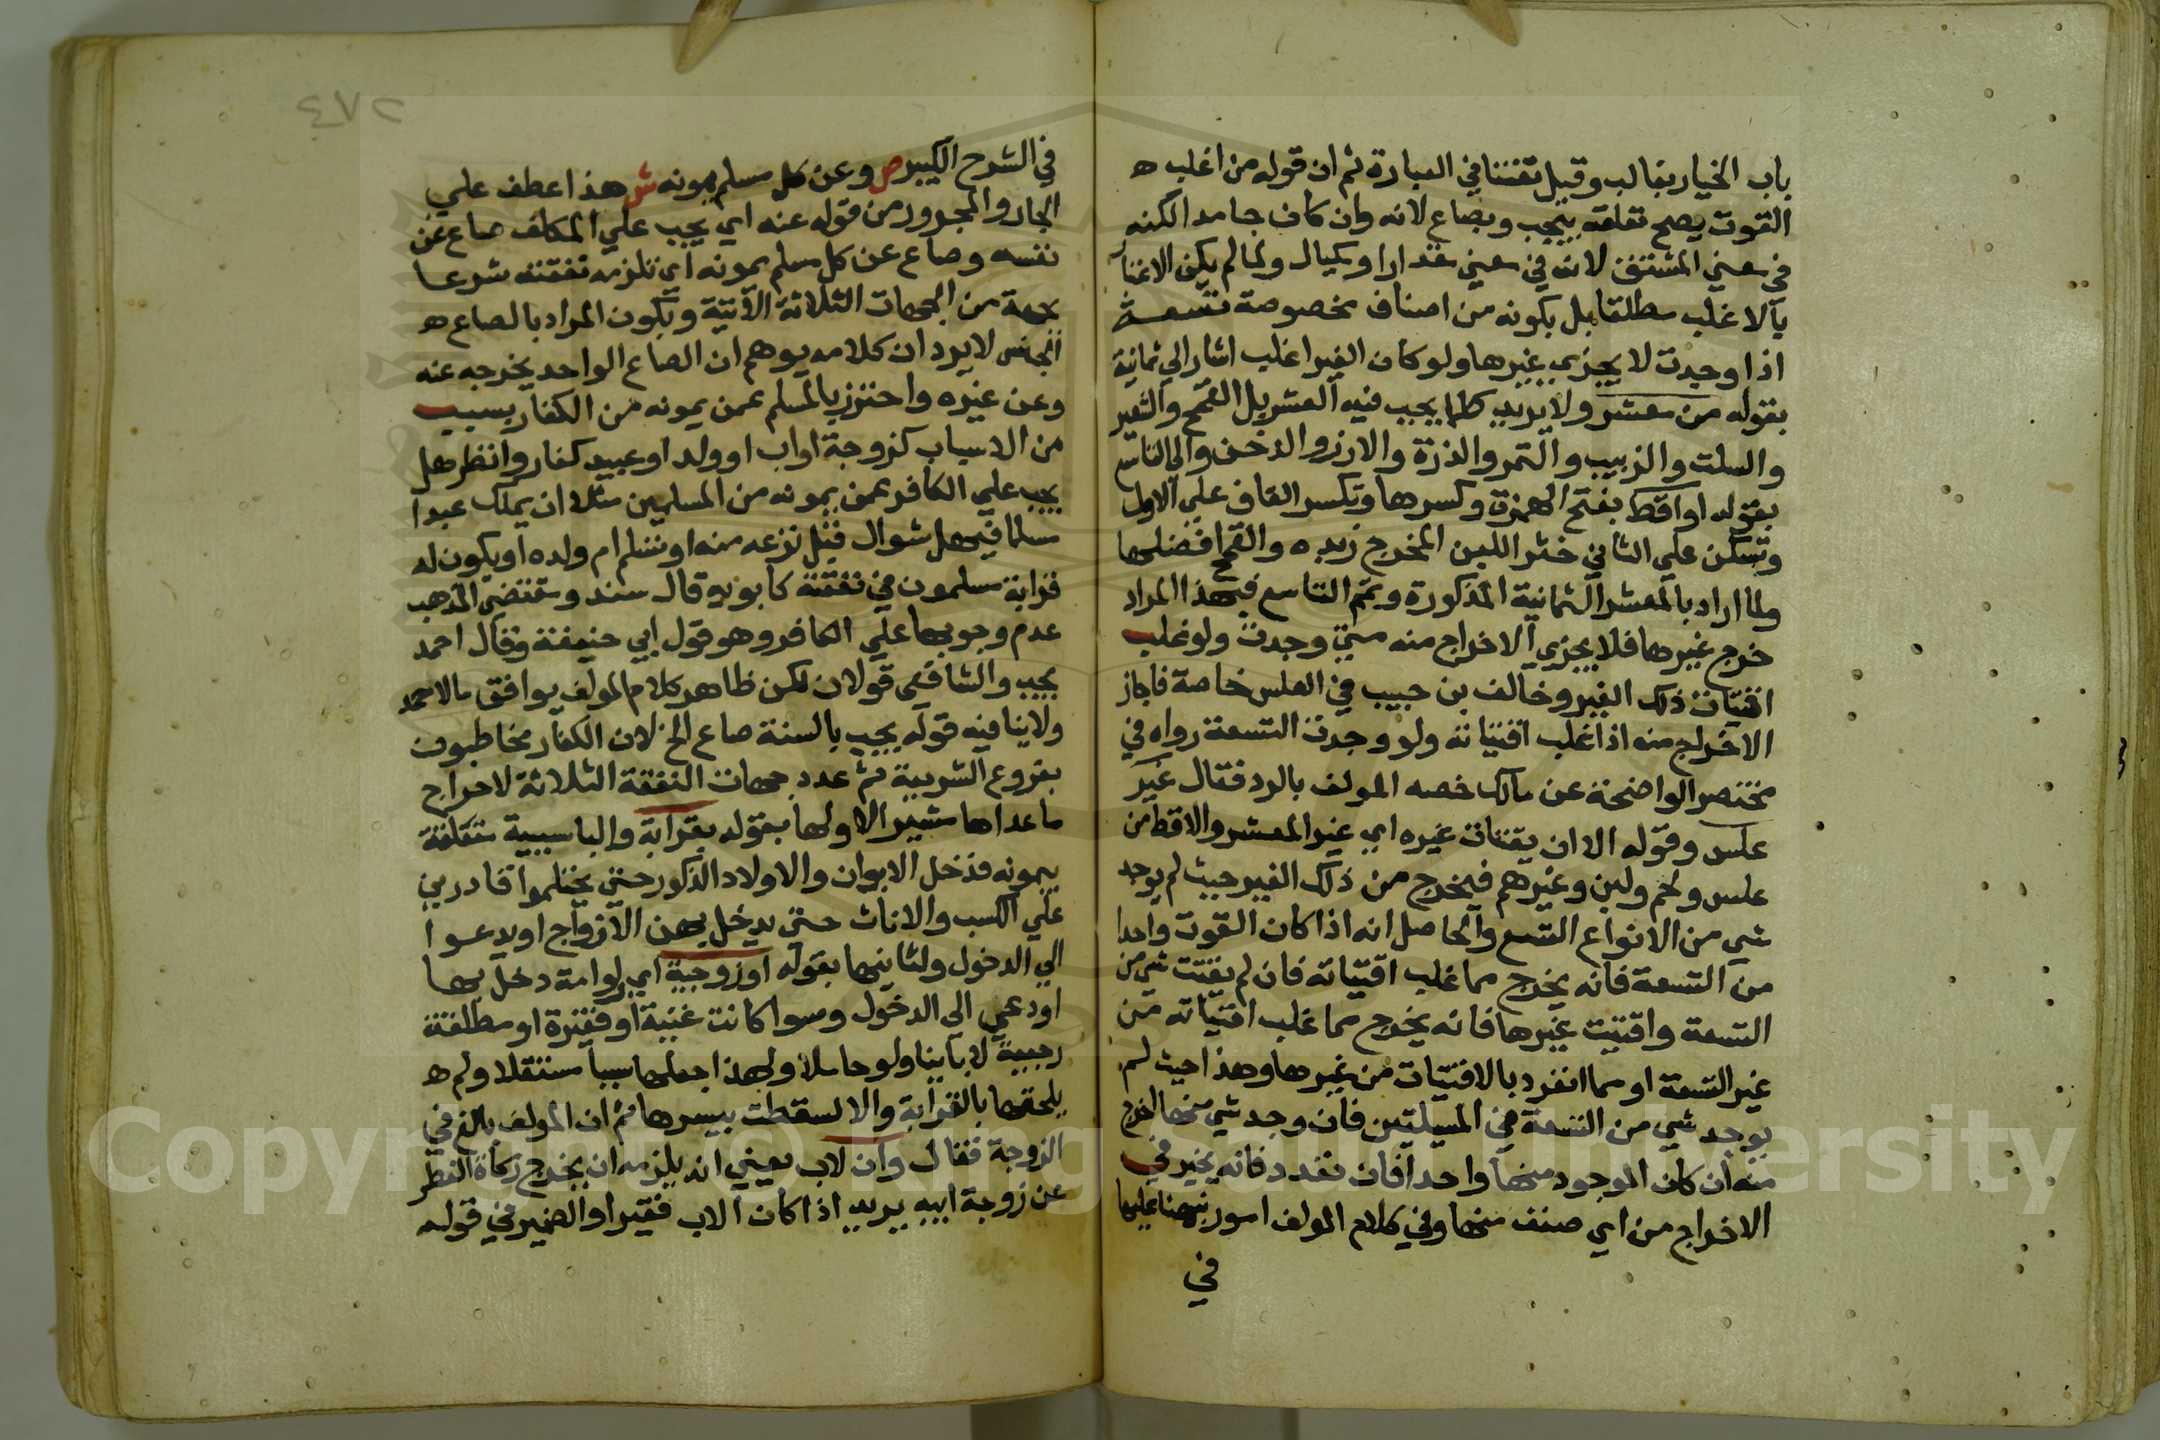 باب الخيار بغالب وقيل تفننا في العبارة ثم ان قوله من اغلب ه
القوت يصح تعلقه بيجب وبصاع لانه وان كان جامدا لكنه
في معني المشتق لانه في معني مقدارا ومكيال ولما لم يكن الاعتبار
بالاغلب مطلقا بل بكونه من اصناف مخصوصة تسعة
اذا وجدت لا يجزي غيرها ولو كان الغير اغلب اشار الي ثمانية
بقوله من معشر ولا يريد كلما يجب فيه العشر بل القمح والشعير
والسلت والزبيب والتمر والذرة والارز والدخن والي التاسع
بقوله او اقط بفتح الهمزة وكسرها وتكسر القاف علي الاول
وتسكن علي الثاني خثر اللبن المخرج زبده والقمح افضلها
ولما اراد بالمعشر الثمانية المذكورة وتمم التاسع فبهذا المراد
خرج غيرها فلا يجزي الاخراج منه متي وجدت ولو غلب
اقتيات ذلك الغير وخالف بن حبيب في العلس خاصة فاجاز
الاخراج منه اذا غلب اقتياته ولو وجدت التسعة رواه في
مختصر الواضحة عن مالك خصه المولف بالرد فقال غير
علس وقوله الا ان يقتات غيره اي غير المعشر والاقط من
علس ولحم ولبن وغيرهم فيخرج من ذلك الغير حيث لم يوجد
شي من الانواع التسع والحاصل انه اذا كان القوت واحدا
من التسعة فانه يخرج مما غلب اقتياته فان لم يقتت شي من
التسعة واقتيت غيرها فانه يخرج مما غلب اقتياته من
غير التسعة او مما انفرد بالاقتيات من غيرها وهذا حيث لم
يوجد شي من التسعة في المسيلتين فان وجد شي منها اخرج
منه ان كان الموجود منها واحدا فان تعدد فانه يخير في
الاخراج من اي صنف منها وفي كلام المولف امور نبهنا عليها
في
٤٧٢
في الشرح الكبير ص وعن كل مسلم يمونه ش هذا عطف علي
الجار والمجرور من قوله عنه اي يجب علي المكلف صاع عن
نفسه وصاع عن كل مسلم يمونه اي تلزمه نفقته شرعا
بجهة من الجهات الثلاثة الآتية ويكون المراد بالصاع ه
الجنس لا يرد ان كلامه يوهم ان الصاع الواحد يخرجه عنه
وعن غيره واحترز بالمسلم عمن يمونه من الكفار بسبب
من الاسباب كزوجة او اب او ولد او عبيد كفار وانظر هل
يجب علي الكافر عمن يمونه من المسلمين مثلا ان يملك عبدا
مسلما فيهل شوال قبل نزعه منه او تسلم ام ولده او يكون له
قرابة مسلمون في نفقته كابويه قال سند ومقتضي المذهب
عدم وجوبها علي الكافر وهو قول ابي حنيفة وقال احمد
يجب والشافعي قولان لكن ظاهر كلام المولف يوافق مالاحمد
ولا ينافيه قوله يجب بالسنة صاع الخ لان الكفار مخاطبون
بفروع الشريعة ثم عدد جهات النفقة الثلاثة لاخراج
ما عداها مشيرا لاولها بقوله بقرابة والبا سببية متعلقة
بيمونه فدخل الابوان والاولاد الذكور حتي يحتلموا قادرين
علي الكسب والاناث حتي يدخل بهن الازواج او يدعوا
الي الدخول ولثانيها بقوله او زوجية اي ولو امة دخل بها
او دعي الي الدخول وسوا كانت غنية او فقيرة او مطلقة
رجعية لا باينا ولو حاملا ولهذا جعلها سببا مستقلا ولم ه
يلحقها بالقرابة والا لسقطت بيسرها ثم ان المولف بالغ في
الزوجة فقال وان لاب يعني انه يلزمه ان يخرج زكاة الفطر
عن زوجة ابيه يريد اذا كان الاب فقيرا والضمير في قوله
Copyright © King Saud University